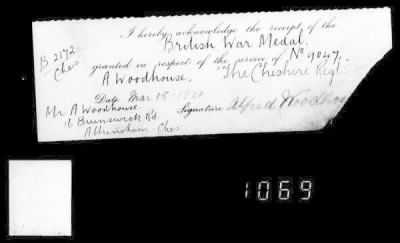 I hereby acknowledge the receipt of the
British War Medal.
B 2172
Ches
granted in respect of the service of No 9047,
A Woodhouse. The Cheshire Regt
Date Mar 15 1921
Signature Alfred Woodhou
Mr A Woodhouse
16 Brunswick Rd
Altrincham Ches
1069